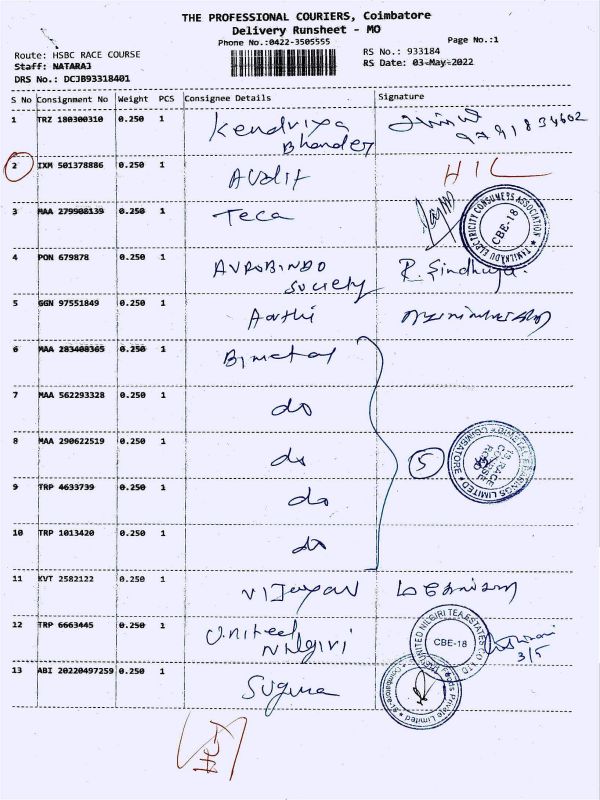 THE PROFESSIONAL COURIERS, Coimbatore
Delivery Runsheet - MO
Phone No.:0422-3505555
Page No.:1
Route: HSBC RACE COURSE
RS No.: 933184
Staff: NATARAJ
RS Date: 03-May-2022
DRS No.: DCJB93318401
S No Consignment No Weight PCS Consignee Details Signature
1 TRZ 180300310 0.250 1 Kendriya
Bhander
9791834602
2 IXM 501378886 0.250 1 Audit
3 MAA 279908139 0.250 1 Teca
TAMILNADU ELECTRICITY CONSUMERS ASSOCIATION
CBE-18
4 PON 679878 0.250 1 AUROBINDO R. Sindhuja.
Society
5 GGN 97551849 0.250 1 Aarthi
6 MAA 283408365 0.250 1 Bimetal
7 MAA 562293328 0.250 1 do
8 MAA 290622519 0.250 1 do
5
BIMETAL BEARINGS LIMITED
COIMBATORE
9 TRP 4633739 0.250 1 do
10 TRP 1013420 0.250 1 do
11 KVT 2582122 0.250 1 Vijayan
12 TRP 6663445 0.250 1 United
Nilgiri
THE UNITED NILGIRI TEA ESTATES CO. LTD
CBE-18
3/5
13 ABI 20220497259 0.250 1 Suguna
Foods Private Limited
Coimbatore